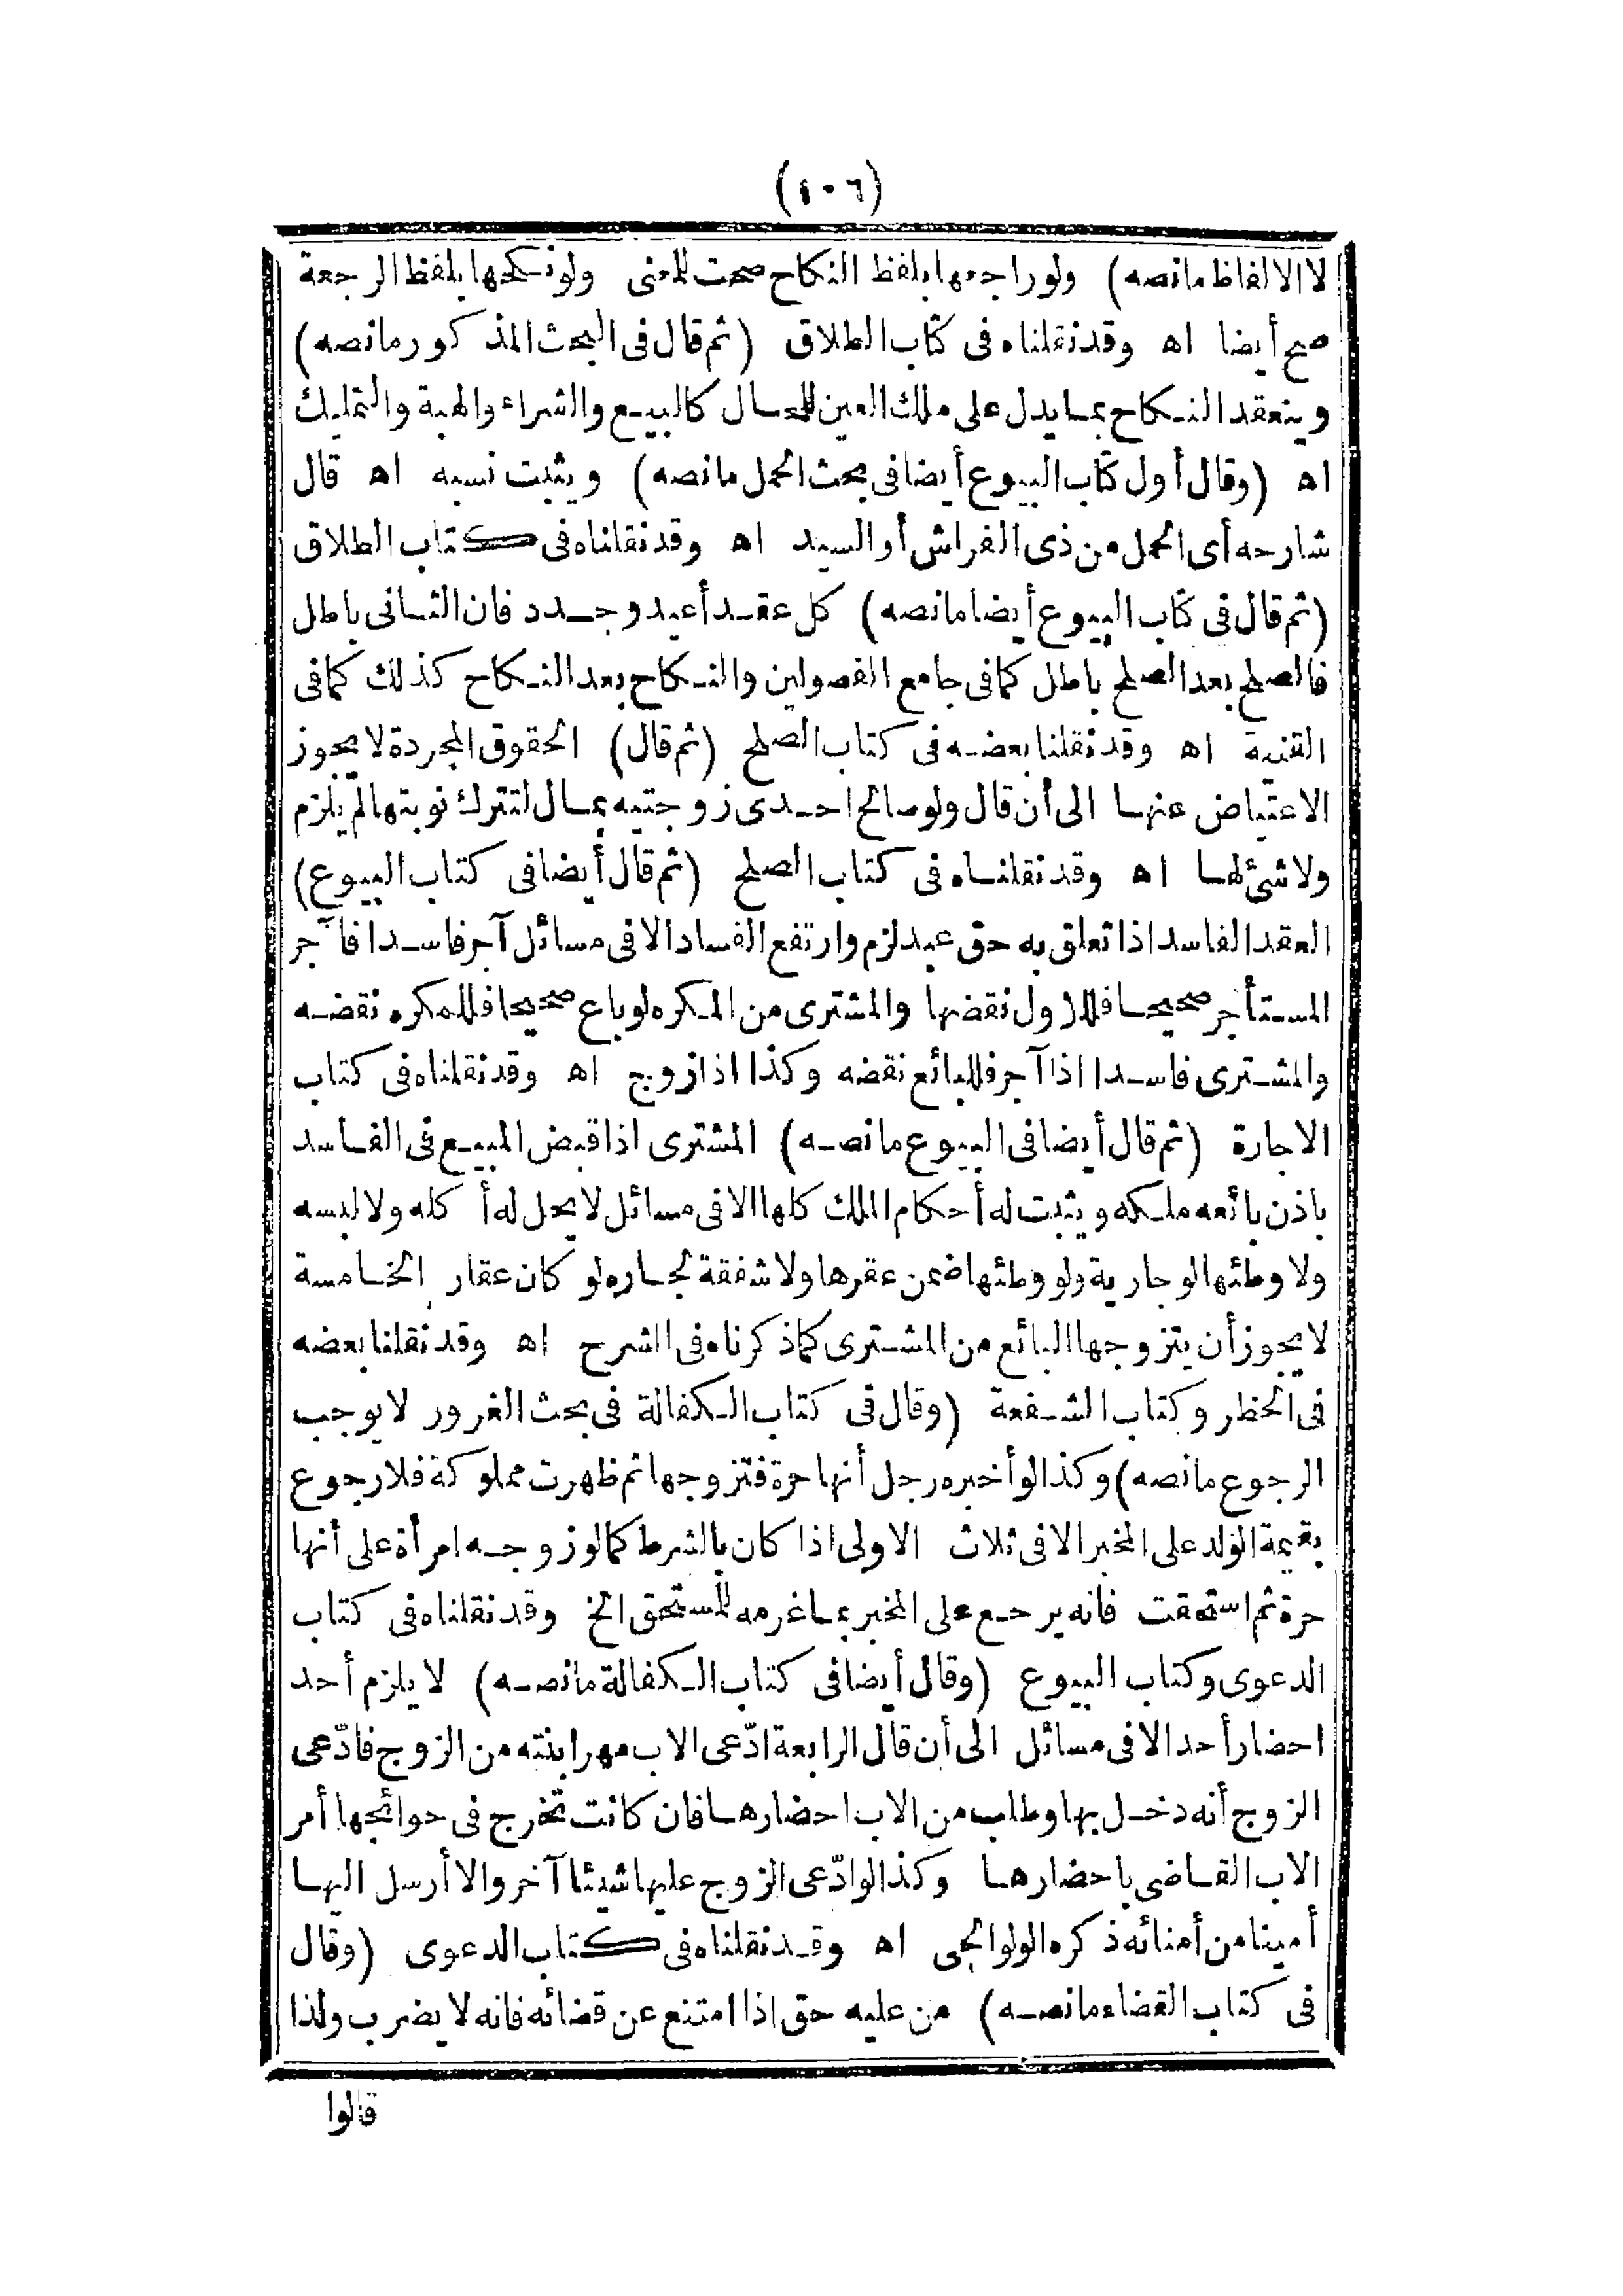 (١٠٦)
لا الالفاظ مانصه) ولو راجعها بلفظ النكاح صحت للمعنى ولو نكحها بلفظ الرجعة
صح أيضا اه وقد نقلناه فى كتاب الطلاق (ثم قال فى البحث المذكور مانصه)
وينعقد النكاح بما يدل على ملك العين للحال كالبيع والشراء والهبة والتمليك
اه (وقال أول كتاب البيوع أيضا فى بحث الحمل مانصه) ويثبت نسبه اه قال
شارحه أى الحمل من ذى الفراش أو السيد اه وقد نقلناه فى كتاب الطلاق
(ثم قال فى كتاب البيوع أيضا مانصه) كل عقد أعيد وجدد فان الثانى باطل
فالصلح بعد الصلح باطل كما فى جامع الفصولين والنكاح بعد النكاح كذلك كما فى
القنية اه وقد نقلنا بعضه فى كتاب الصلح (ثم قال) الحقوق المجردة لا يجوز
الاعتياض عنها الى أن قال ولو صالح احدى زوجتيه بمال لتترك نوبتها لم يلزم
ولا شئ لها اه وقد نقلناه فى كتاب الصلح (ثم قال أيضا فى كتاب البيوع)
العقد الفاسد اذا تعلق به حق عبد لزم وارتفع الفساد الا فى مسائل آجر فاسدا فآجر
المستأجر صحيحا فللاول نقضها والمشترى من المكره لو باع صحيحا فللمكره نقضه
والمشترى فاسدا اذا آجر فللبائع نقضه وكذا اذا زوج اه وقد نقلناه فى كتاب
الاجارة (ثم قال أيضا فى البيوع مانصه) المشترى اذا قبض المبيع فى الفاسد
باذن بائعه ملكه ويثبت له أحكام الملك كلها الا فى مسائل لا يحل له أكله ولا لبسه
ولا وطئها لو جارية ولو وطئها ضمن عقرها ولا شفقة لجاره لو كان عقار الخامسة
لا يجوز أن يتزوجها البائع من المشترى كما ذكرناه فى الشرح اه وقد نقلنا بعضه
فى الحظر وكتاب الشفعة (وقال فى كتاب الكفالة فى بحث الغرور لا يوجب
الرجوع مانصه) وكذا لو أخبره رجل أنها حرة فتزوجها ثم ظهرت مملوكة فلا رجوع
بقيمة الولد على المخبر الا فى ثلاث الاولى اذا كان بالشرط كما لو زوجه امرأة على أنها
حرة ثم استحقت فانه يرجع على المخبر بما غرمه للمستحق الخ وقد نقلناه فى كتاب
الدعوى وكتاب البيوع (وقال أيضا فى كتاب الكفالة مانصه) لا يلزم أحد
احضار أحد الا فى مسائل الى أن قال الرابعة ادّعى الاب مهر ابنته من الزوج فادّعى
الزوج أنه دخل بها وطلب من الاب احضارها فان كانت تخرج فى حوائجها أمر
الاب القاضى باحضارها وكذا لو ادّعى الزوج عليها شيئا آخر والا أرسل اليها
أمينا من أمنائه ذكره الولوالجى اه وقد نقلناه فى كتاب الدعوى (وقال
فى كتاب القضاء مانصه) من عليه حق اذا امتنع عن قضائه فانه لا يضرب ولذا
قالوا